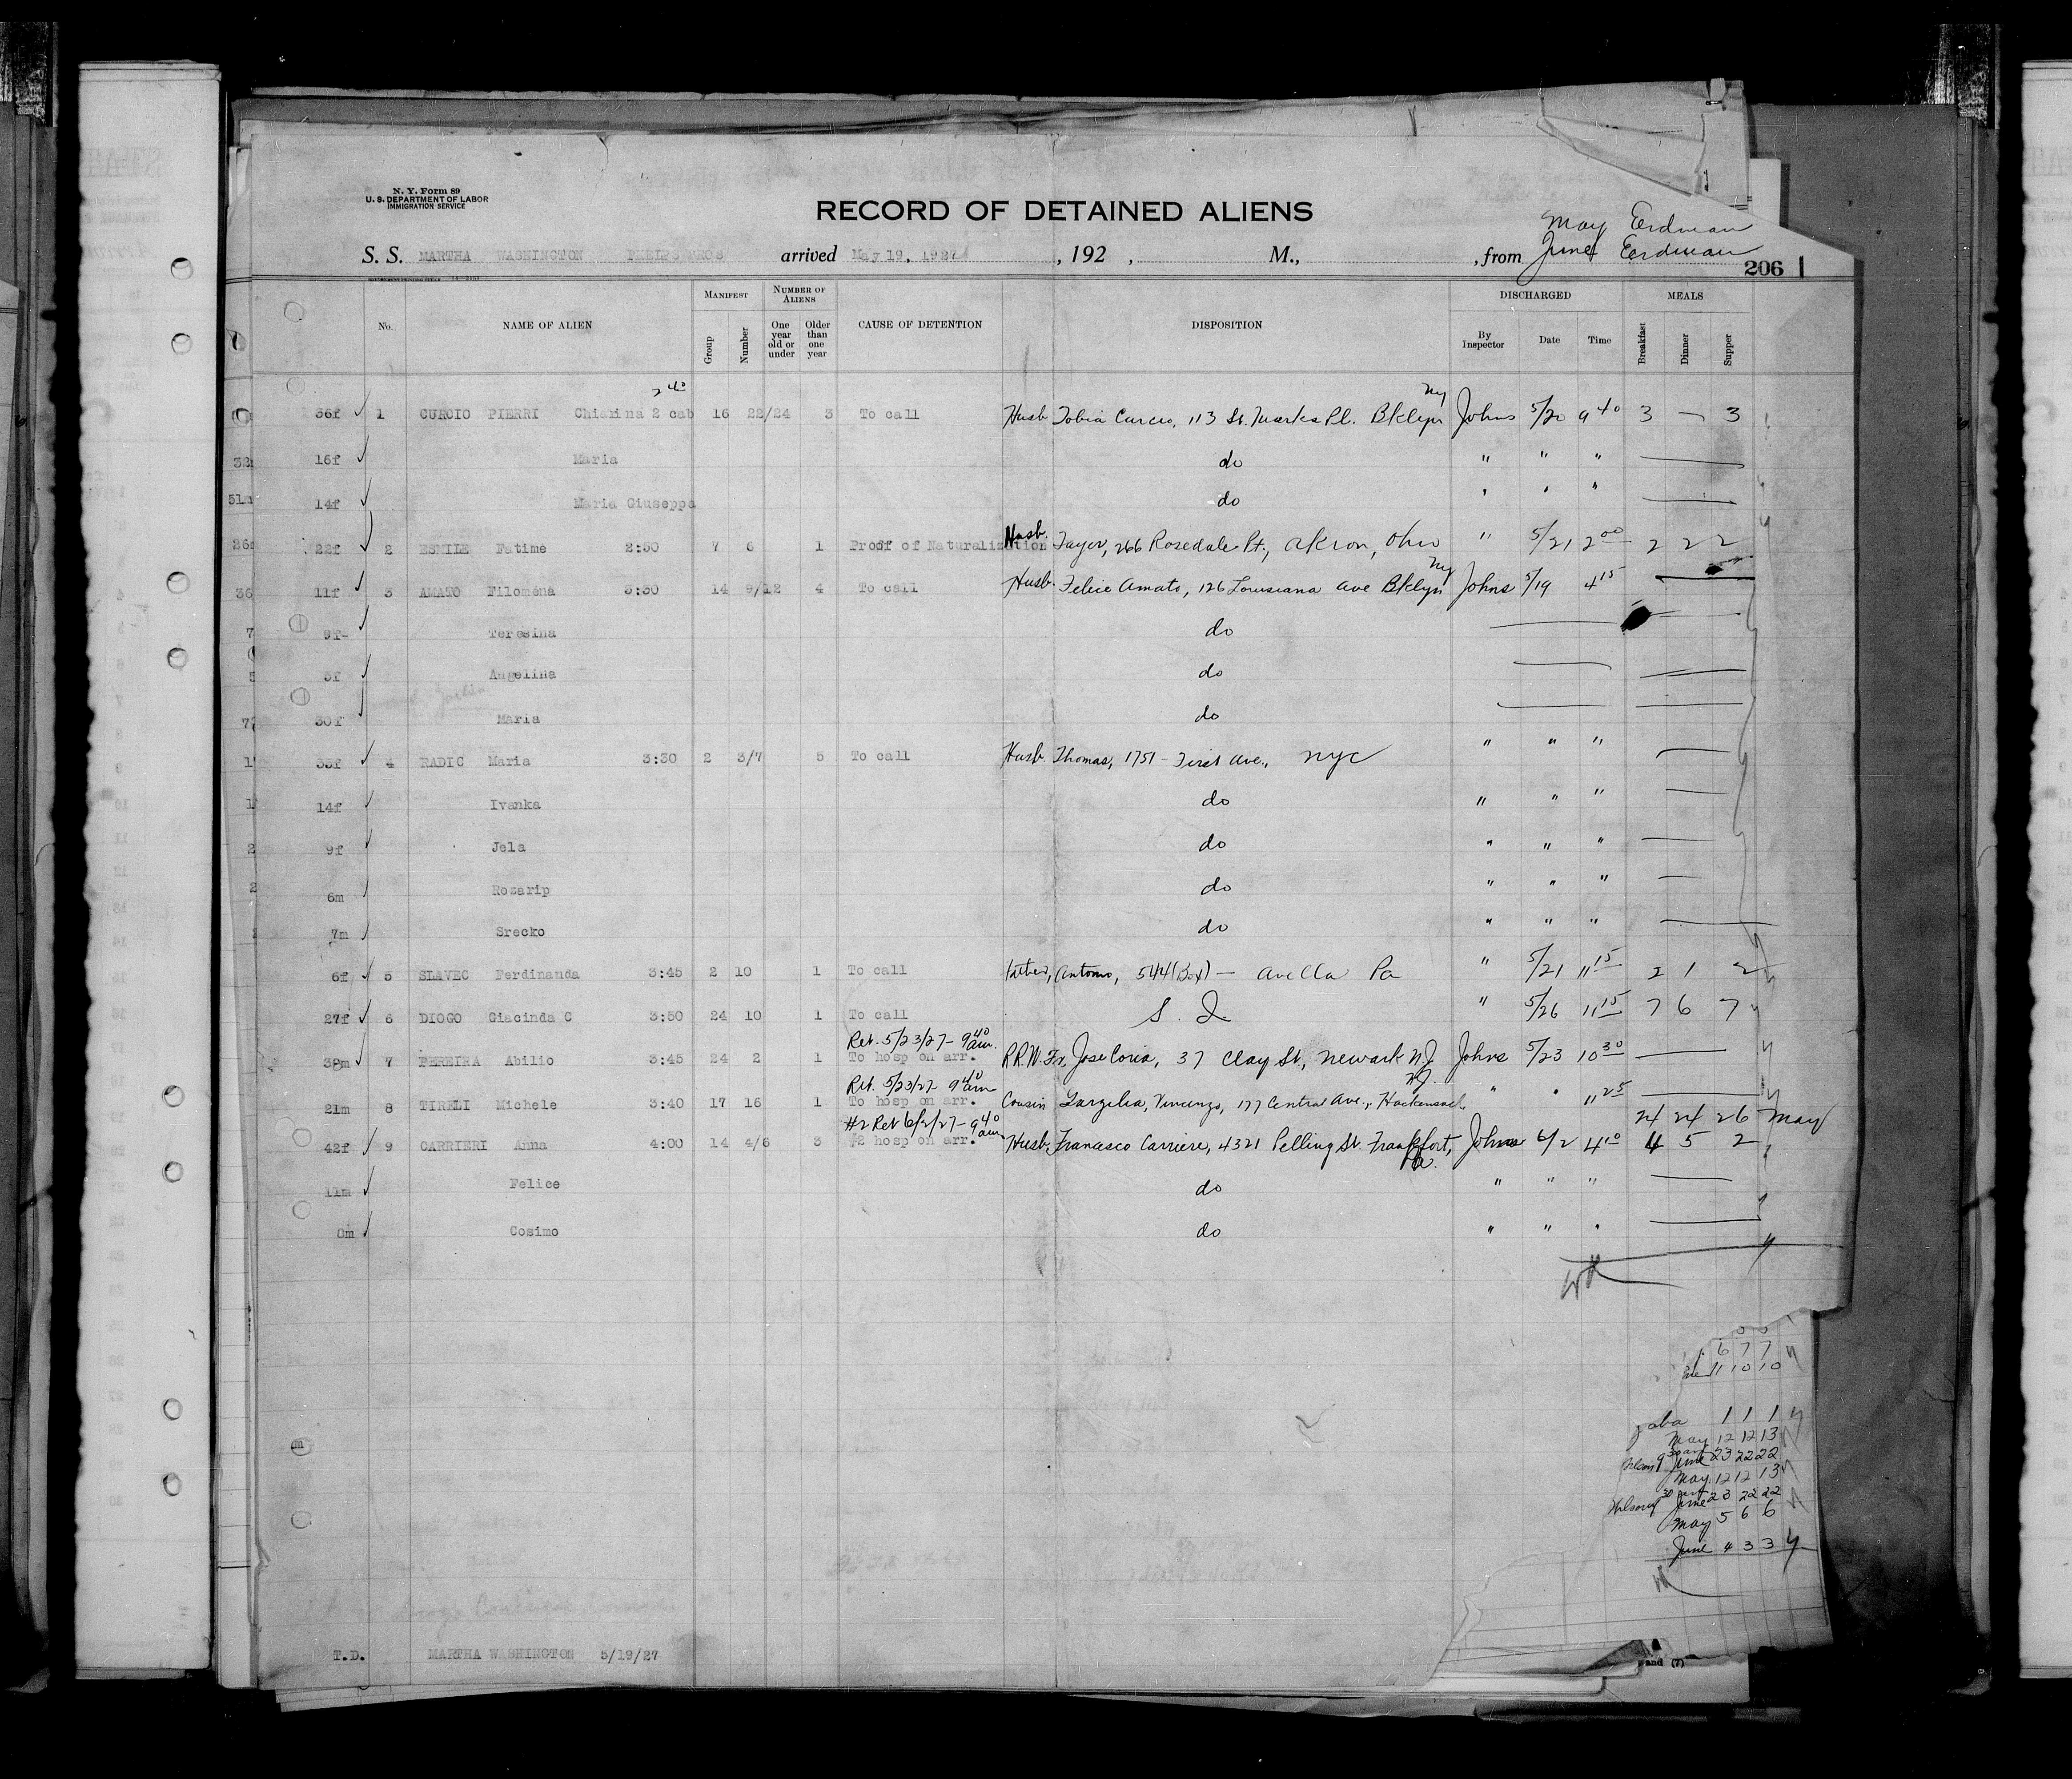 N. Y. Form 89
U. S. DEPARTMENT OF LABOR
IMMIGRATION SERVICE
RECORD OF DETAINED ALIENS
May Eerdman
June Eerdman
S. S. MARTHA WASHINGTON PHELPS BROS arrived May 19, 1927 , 192 , M., , from
206
No. NAME OF ALIEN MANIFEST Group Number NUMBER OF ALIENS One year old or under Older than one year CAUSE OF DETENTION DISPOSITION DISCHARGED By Inspector Date Time MEALS Breakfast Dinner Supper
36f 1 CURCIO PIERRI Chiarina 2 cab 16 22/24 3 To call Husb. Tobia Curcio, 113 St. Marks Pl. Bklyn NY Johns 5/20 9 40 3 — 3
16f Maria do " " "
14f Maria Giuseppa do " " "
22f 2 ESMILE Fatime 2:50 7 6 1 Proof of Naturalization Husb. Tayer, 266 Rosedale Pt., Akron, Ohio " 5/21 2 00 2 2 2
11f 3 AMATO Filomena 3:30 14 9/12 4 To call Husb. Felice Amato, 126 Louisiana Ave Bklyn NY Johns 5/19 4 15
9f Teresina do
3f Angelina do
30f Maria do
35f 4 RADIC Maria 3:30 2 3/7 5 To call Husb. Thomas, 1751 - First Ave., NYC " " "
14f Ivanka do " " "
9f Jela do " " "
6m Rosarip do " " "
7m Srecko do " " "
6f 5 SLAVEC Ferdinanda 3:45 2 10 1 To call Father, Antonio, 544 (Box) — Avella Pa " 5/21 11 15 2 1 2
27f 6 DIOGO Giacinda C 3:50 24 10 1 To call S. I. " 5/26 11 15 7 6 7
Ret. 5/23/27 - 9 40 am.
38m 7 PEREIRA Abilio 3:45 24 2 1 To hosp on arr. R.R.W. Fr, Jose Coria, 37 Clay St, Newark N.J. Johns 5/23 10 30
Ret. 5/23/27 9 40 am
21m 8 TIRELI Michele 3:40 17 16 1 To hosp on arr. Cousin Vincenzo, 177 Central Ave., Hackensack NJ. " " 11 25
#2 Ret 6/2/27 - 9 40 am. 24 24 26 May
42f 9 CARRIERI Anna 4:00 14 4/6 3 #2 hosp on arr. Husb. Francesco Carriere, 4321 Pelling St. Frankfort, Pa. Johns 6/2 4 10 4 5 2
11m Felice do " " "
8m Cosimo do " " "
6 7 7
11 10 10
1 1 1
May 12 12 13
June 23 22 22
May 12 12 13
June 23 22 22
May 5 6 6
June 4 3 3
T.D. MARTHA WASHINGTON 5/19/27
and (7)